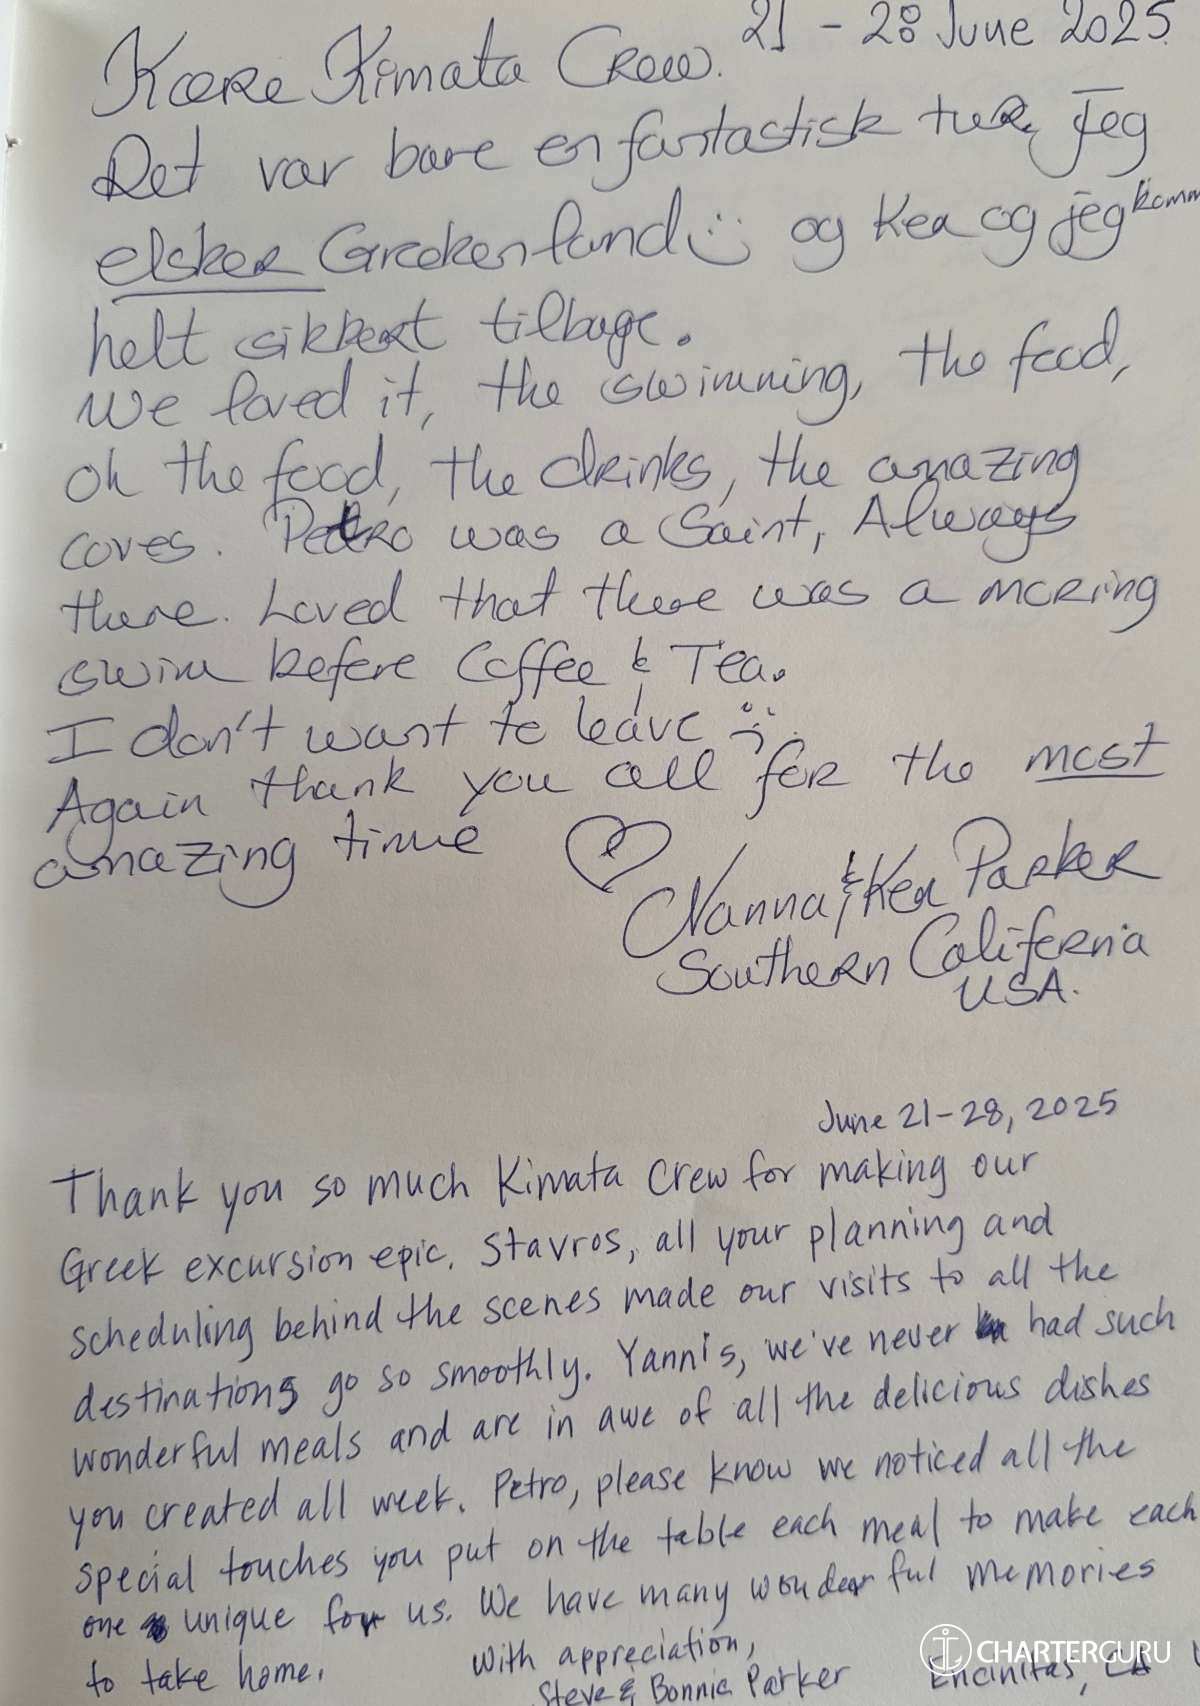 21 - 28 June 2025
Kære Kimata Crew.
Det var bare en fantastisk tur, Jeg
elsker Grækenland :) og Kea og jeg komm
helt sikkert tilbage.
We loved it, the swimming, the food,
oh the food, the drinks, the amazing
coves. Petro was a Saint, Always
there. Loved that there was a moring
swim before Coffee & Tea.
I don't want to leave :(.
Again thank you all for the most
amazing time ♡
Nanna & Ken Parker
Southern California
USA.
June 21-28, 2025
Thank you so much Kimata Crew for making our
Greek excursion epic. Stavros, all your planning and
scheduling behind the scenes made our visits to all the
destinations go so smoothly. Yannis, we've never had such
wonderful meals and are in awe of all the delicious dishes
you created all week. Petro, please know we noticed all the
special touches you put on the table each meal to make each
one unique for us. We have many wonderful memories
to take home.
With appreciation,
Steve & Bonnie Parker
Encinitas, CA
CHARTERGURU